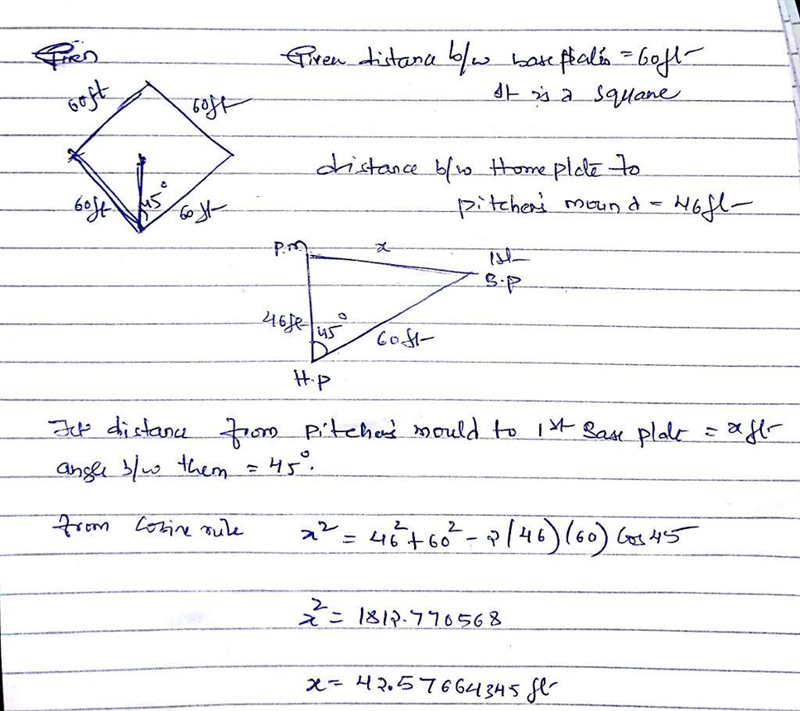 Given
Given distance b/w base plates = 60ft
It is a square
60ft 60ft
60ft 45° 60ft
distance b/w Home plate to
pitcher's mound = 46ft
P.m x 1st
B.P
46ft 45° 60ft
H.P
distance from pitcher's mould to 1st Base plate = x ft
angle b/w them = 45°.
from Cosine rule x² = 46² + 60² - 2(46)(60) Cos 45
x² = 1812.770568
x = 42.57664345 ft